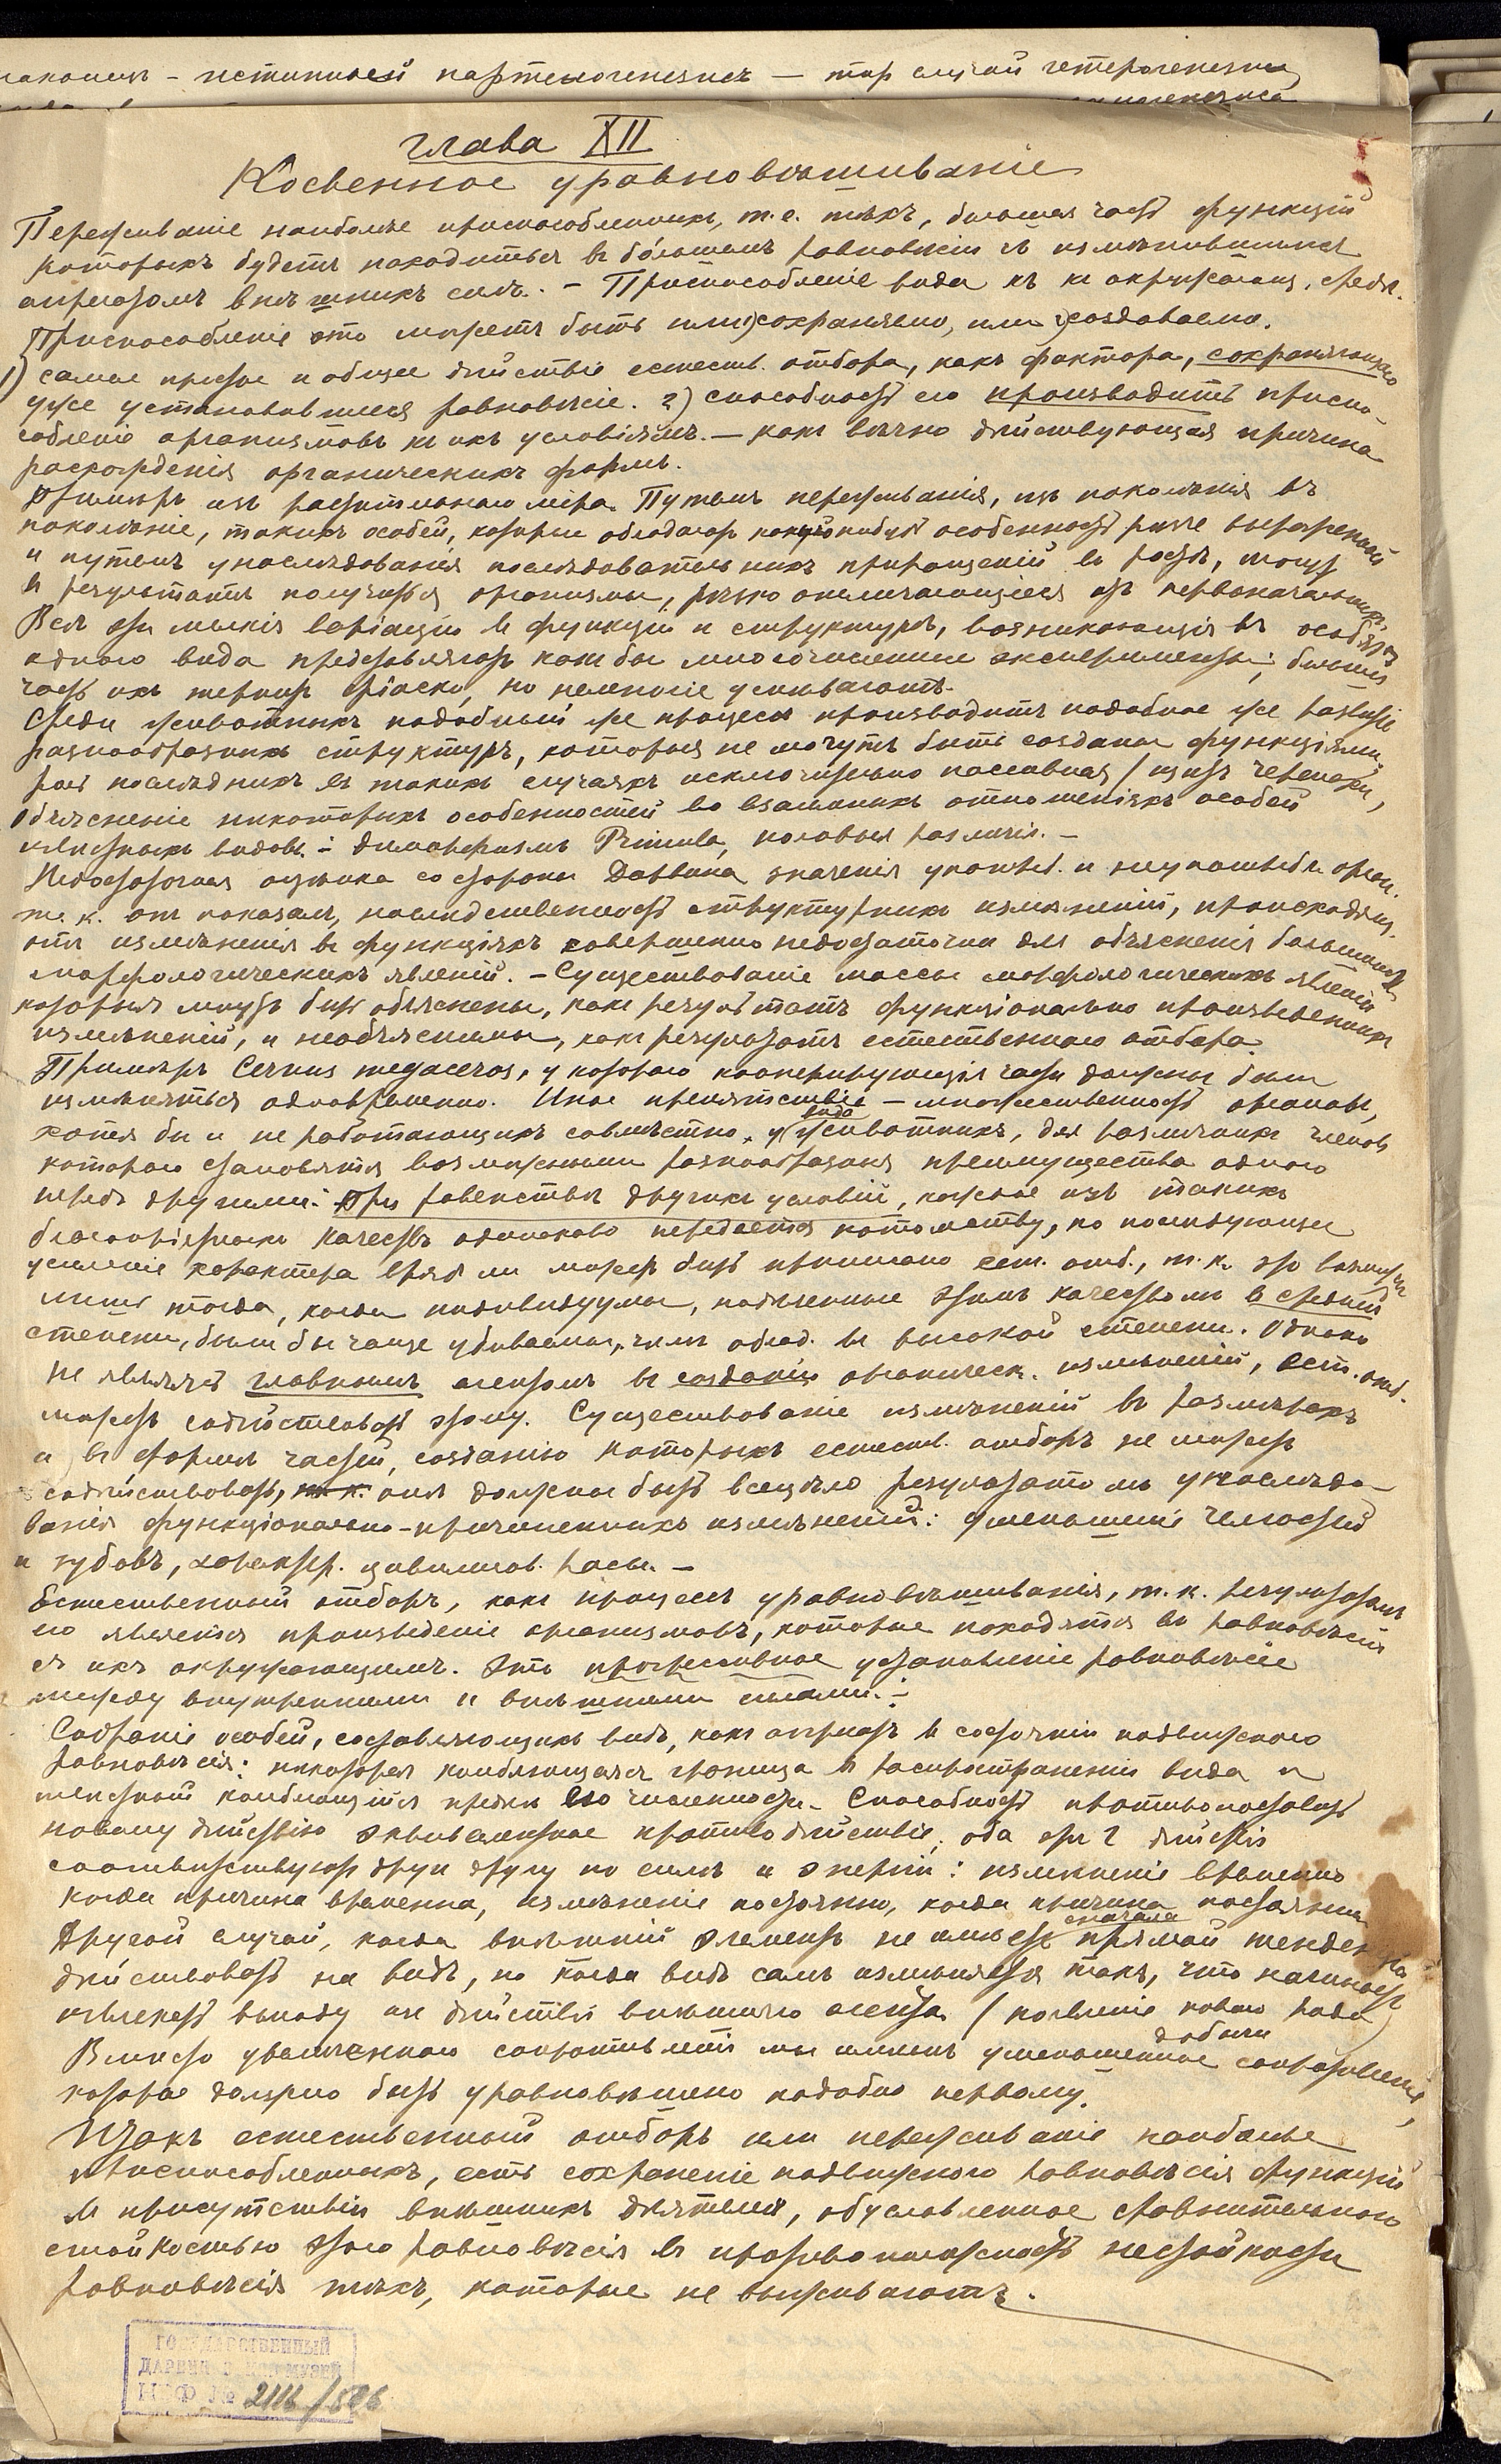 наконецъ – истинный партеногенезисъ — тар случай гетерогенезиса
глава XII
Косвенное уравновѣшиваніе
Переживаніе наиболѣе приспособленныхъ, т.е. тѣхъ, бо́льшая часть функцій
которыхъ будетъ находиться въ бо́льшемъ равновѣсіи съ измѣнившимся
агрегатомъ внѣшнихъ силъ. – Приспособленіе вида къ окружающ. средѣ.
Приспособленіе это можетъ быть или 1) сохраняемо, или 2) создаваемо.
1) самое простое и общее дѣйствіе естеств. отбора, какъ фактора, сохраняющаго
уже установившееся равновѣсіе. 2) способность его производить приспо-
собленіе организмовъ къ ихъ условіямъ. — какъ вѣчно дѣйствующая причина
расхожденія органическихъ формъ.
Примѣръ изъ растительнаго міра. Путемъ переживанія, изъ поколѣнія въ
поколѣніе, такихъ особей, которые обладаютъ какой нибудь особенностью рѣзче выраженной
и путемъ унаслѣдованія послѣдовательныхъ приращеній въ ростѣ, могутъ
въ результатѣ получиться организмы, рѣзко отличающіеся отъ первоначальныхъ.
Всѣ эти мелкія варіаціи въ функціи и структурѣ, возникающія въ особяхъ
одного вида представляютъ какъ бы многочисленные эксперименты; бо́льшая
часть ихъ терпитъ фіаско, но немногіе успѣваютъ.
Среди животныхъ подобный же процессъ производитъ подобное же развитіе
разнообразныхъ структуръ, которыя не могутъ быть созданы функціями,
роль послѣднихъ въ такихъ случаяхъ исключительно пассивная (щитъ черепахи,
Объясненіе нѣкоторыхъ особенностей во взаимныхъ отношеніяхъ особей
извѣстныхъ видовъ. – диморфизмъ Primula, половыя различія. –
Недостаточная оцѣнка со стороны Дарвина значенія употреб. и неупотребл. орган.
т.к. онъ показалъ, наслѣдственность структурныхъ измѣненій, происходящ.
отъ измѣненія въ функціяхъ совершенно недостаточна для объясненія большинства
морфологическихъ явленій. – Существованіе массы морфологическихъ явленій
которыя могутъ быть объяснены, какъ результатъ функціонально произведенныхъ
измѣненій, и необъяснимы, какъ результатъ естественнаго отбора.
Примѣръ Cervus megaceros, у котораго кооперирующія части должны были
измѣняться одновременно. Иное препятствіе – множественность органовъ,
хотя бы и не работающихъ совмѣстно, у вида животныхъ, для различныхъ членовъ
котораго становятся возможными разнообразныя преимущества одного
передъ другими. При равенствѣ другихъ условій, каждое изъ такихъ
благопріятныхъ качествъ одинаково передается потомству, но послѣдующее
усиленіе характера врядъ ли можетъ быть приписано ест. отб., т.к. это возможно
лишь тогда, когда индивидуумы, надѣленные этимъ качествомъ въ средней
степени, были бы чаще убиваемы, чѣмъ облад. въ высокой степени. Однако
не являясь главнымъ агентомъ въ созданіи органическ. измѣненій, ест. отб.
можетъ содѣйствовать этому. Существованіе измѣненій въ размѣрахъ
и въ формѣ частей, созданію которыхъ естеств. отборъ не можетъ
содѣйствовать, они должны быть всецѣло результатомъ унаслѣдо-
ванія функціонально-причиненныхъ измѣненій: уменьшеніе челюстей
и зубовъ, характер. цивилизов. расы. –
Естественный отборъ, какъ процессъ уравновѣшиванія, т.к. результатомъ
его является произведеніе организмовъ, которые находятся въ равновѣсіи
съ ихъ окружающимъ. Это прогрессивное установленіе равновѣсія
между внутренними и внѣшними силами. –
Собраніе особей, составляющихъ видъ, какъ агрегатъ въ состояніи подвижного
равновѣсія: нѣкоторая колеблющаяся граница въ распространеніи вида и
колеблющійся предѣлъ его численности – Способность противопоставлять
новому дѣйствію эквивалентное противодѣйствіе; оба эти 2 дѣйствія
соотвѣтствуютъ другъ другу по силѣ и энергіи: измѣненіе временно
когда причина временна, измѣненіе постоянно, когда причина постоянна
Другой случай, когда внѣшній элементъ не имѣетъ сначала прямой тенденціи
дѣйствовать на видъ, но когда видъ самъ измѣняется такъ, что начинаетъ
извлекать выгоду изъ дѣйствія внѣшняго агента (появленіе новаго рода добычи)
Вмѣсто увеличеннаго сопротивленія мы имѣемъ уменьшенное сопротивленіе,
которое должно быть уравновѣшено подобно первому.
Итакъ естественный отборъ или переживаніе наиболѣе
приспособленныхъ, есть сохраненіе подвижного равновѣсія функцій
въ присутствіи внѣшнихъ дѣятелей, обусловленное сравнительною
стойкостью этого равновѣсія въ противоположность нестойкости
равновѣсія тѣхъ, которые не выживаютъ.
ГОСУДАРСТВЕННЫЙ
ДАРВИНОВСКИЙ МУЗЕЙ
НВФ № 2116/586